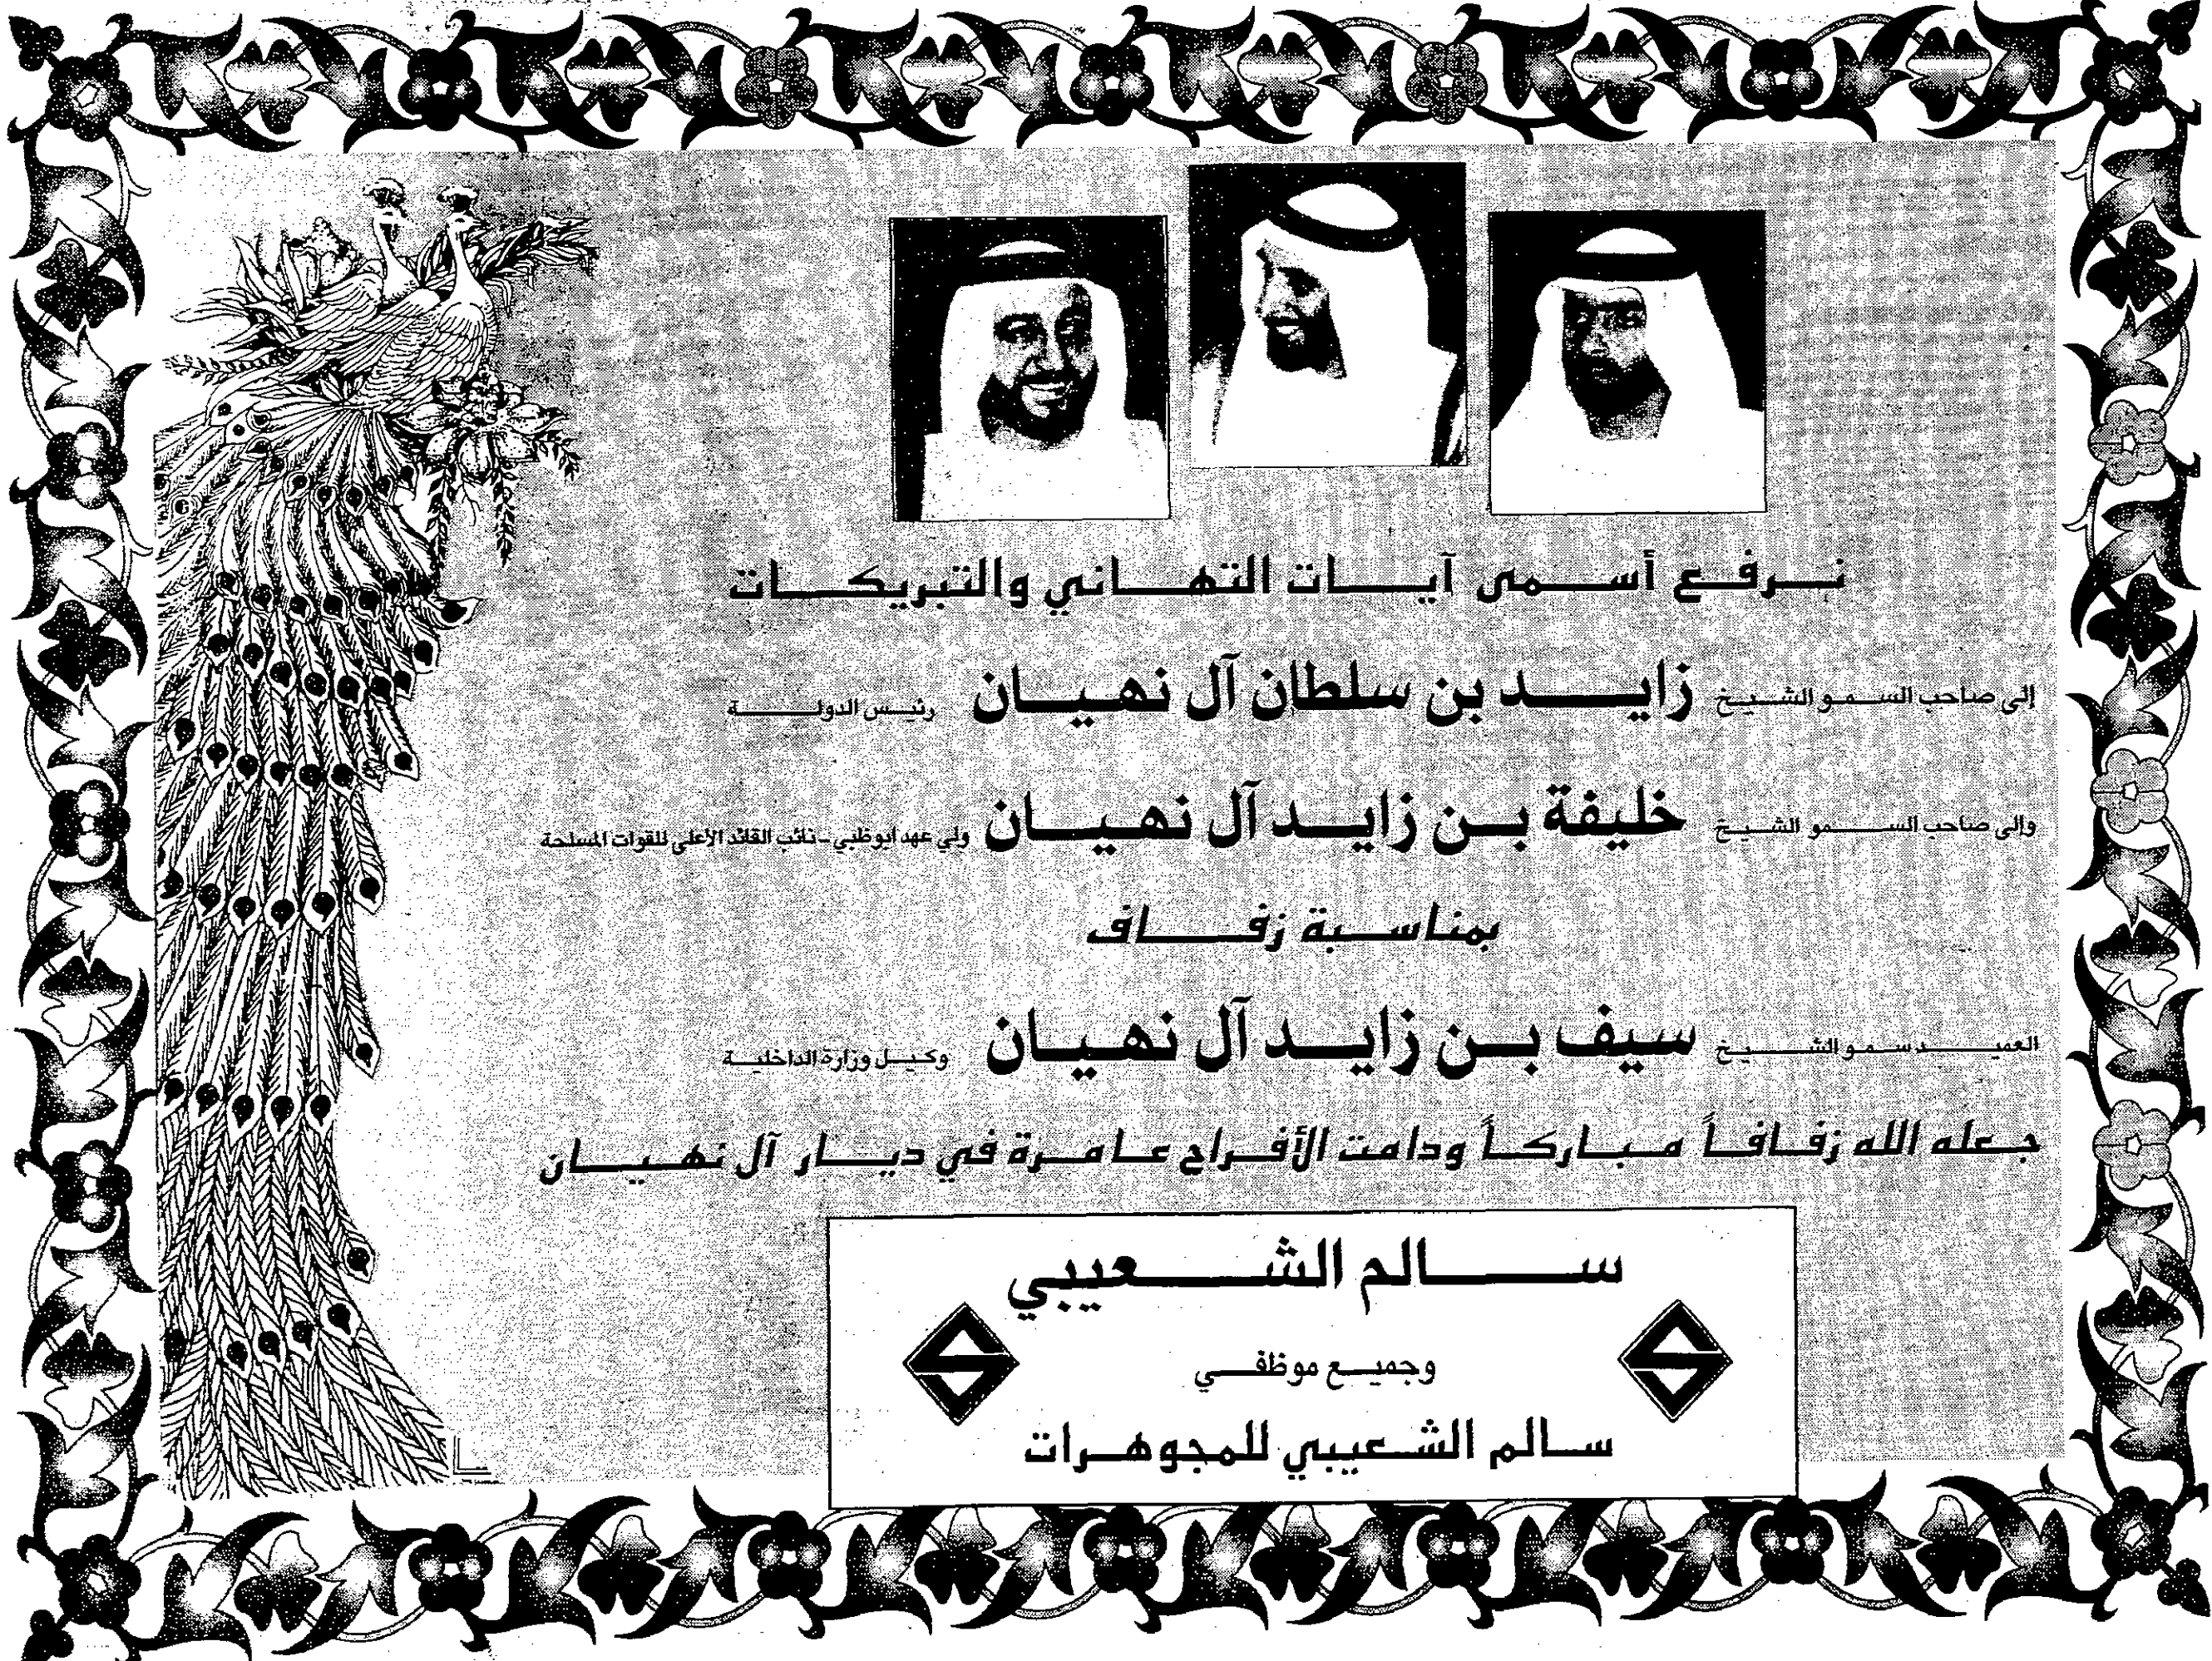 نرفع أسمى آيات التهاني والتبريكات
إلى صاحب السمو الشيخ زايد بن سلطان آل نهيان رئيس الدولة
وإلى صاحب السمو الشيخ خليفة بن زايد آل نهيان ولي عهد أبوظبي - نائب القائد الأعلى للقوات المسلحة
بمناسبة زفاف
العميد سمو الشيخ سيف بن زايد آل نهيان وكيل وزارة الداخلية
جعله الله زفافاً مباركاً ودامت الأفراح عامرة في ديار آل نهيان
سالم الشعيبي
وجميع موظفي
سالم الشعيبي للمجوهرات